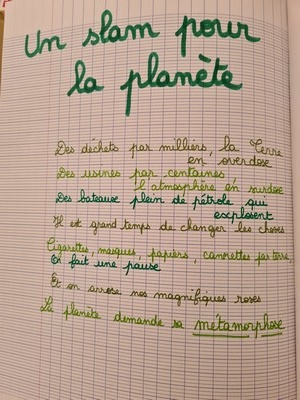 Un slam pour
la planète
Des déchets par milliers, la Terre
en overdose
Des usines par centaines
l'atmosphère en surdose
Des bateaux plein de pétrole qui
explosent
Il est grand temps de changer les choses
Cigarettes, masques, papiers, cannettes par terre
On fait une pause
Et on arrose nos magnifiques roses
La planète demande sa métamorphose